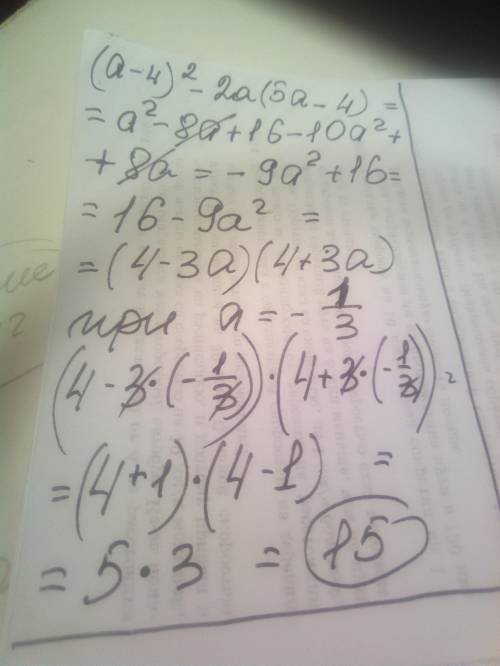 (a-4)² - 2a(5a-4) =
= a² - 8a + 16 - 10a² +
+ 8a = -9a² + 16 =
= 16 - 9a² =
= (4-3a)(4+3a)
при a = -1/3
(4-3·(-1/3))·(4+3·(-1/3)) =
= (4+1)·(4-1) =
= 5·3 = 15